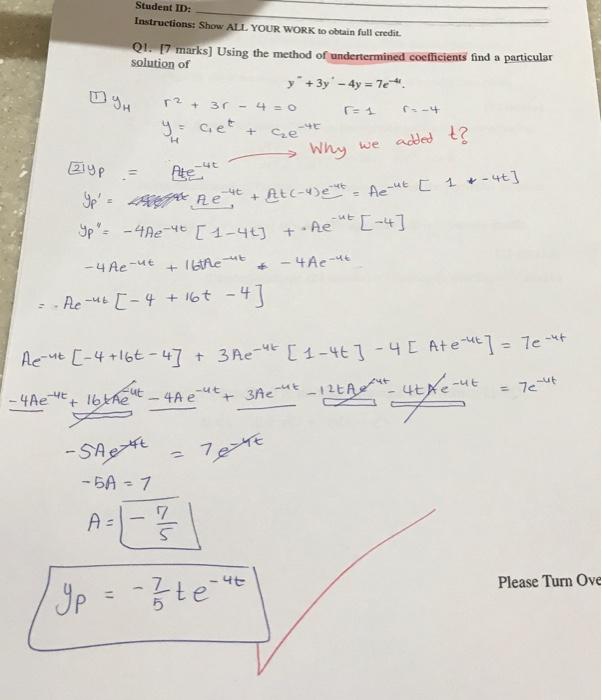 Student ID:
Instructions: Show ALL YOUR WORK to obtain full credit.
Q1. [7 marks] Using the method of undertermined coefficients find a particular
solution of
y″ + 3y′ – 4y = 7e^-4t.
1 yH r² + 3r - 4 = 0 r = 1 r = -4
yH = c₁e^t + c₂e^-4t
Why we added t?
2 yp = Ate^-4t
yp' = Ae^-4t + At(-4)e^-4t = Ae^-4t [ 1 + -4t]
yp" = -4Ae^-4t [1-4t] + Ae^-4t [-4]
-4Ae^-4t + 16tAe^-4t + -4Ae^-4t
= Ae^-4t [-4 + 16t - 4]
Ae^-4t [-4+16t-4] + 3Ae^-4t [1-4t] - 4[Ate^-4t] = 7e^-4t
-4Ae^-4t + 16tAe^-4t - 4Ae^-4t + 3Ae^-4t - 12tAe^-4t - 4tAe^-4t = 7e^-4t
-5Ae^-4t = 7e^-4t
-5A = 7
A = - 7/5
yp = - 7/5 te^-4t
Please Turn Ove